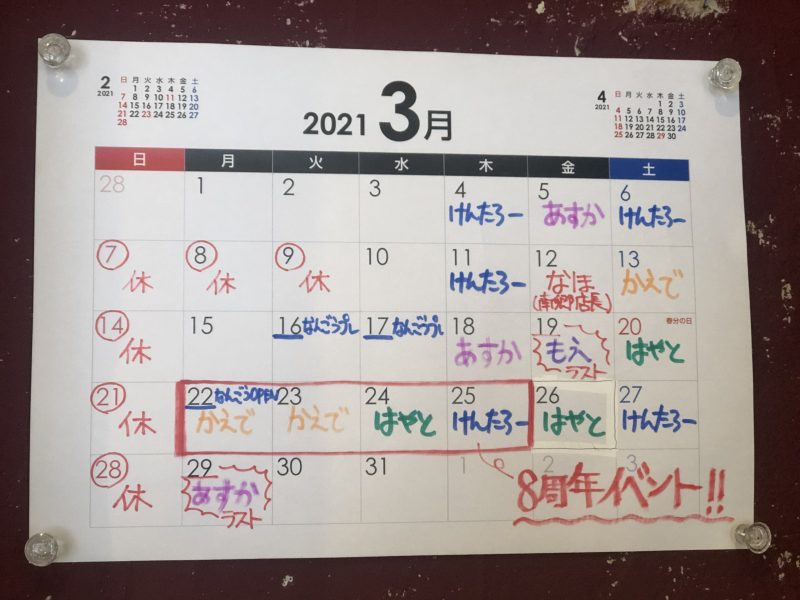 2
2021
日 月 火 水 木 金 土
1 2 3 4 5 6
7 8 9 10 11 12 13
14 15 16 17 18 19 20
21 22 23 24 25 26 27
28
2021 3月
4
2021
日 月 火 水 木 金 土
1 2 3
4 5 6 7 8 9 10
11 12 13 14 15 16 17
18 19 20 21 22 23 24
25 26 27 28 29 30
日 月 火 水 木 金 土
28 1 2 3 4 5 6
けんたろー あすか けんたろー
7 8 9 10 11 12 13
休 休 休 けんたろー なほ かえで
(南郷店長)
14 15 16 なんごうプレ 17 なんごうプレ 18 19 20 春分の日
休 あすか もえ はやと
ラスト
21 22 なんごうOPEN 23 24 25 26 27
休 かえで かえで はやと けんたろー はやと けんたろー
28 29 30 31 1 2 3
休 あすか
ラスト
8周年イベント!!